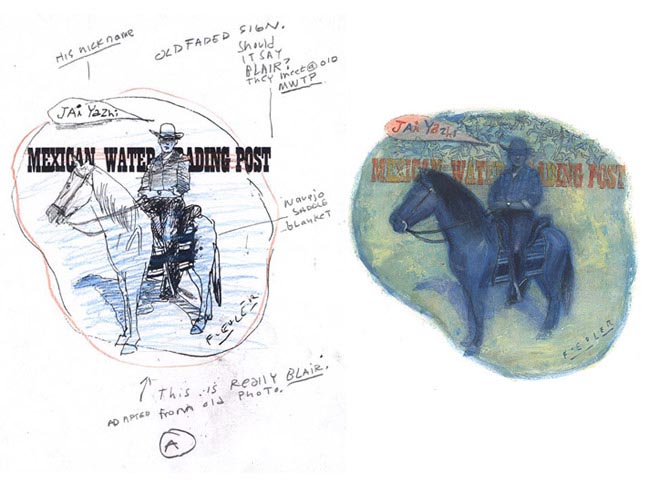 His nickname
OLD FADED SIGN.
Should
IT SAY
BLAIR?
They meet @ OLD
MWTP
JAi YAzhi
MEXICAN WATER ADING POST
Navajo
SADDLE
blanket
FIEDLER
This is REALLY BLAIR.
ADAPTED from old PHOTO.
A
JAi YAzhi
MEXICAN WATER ADING POST
FIEDLER